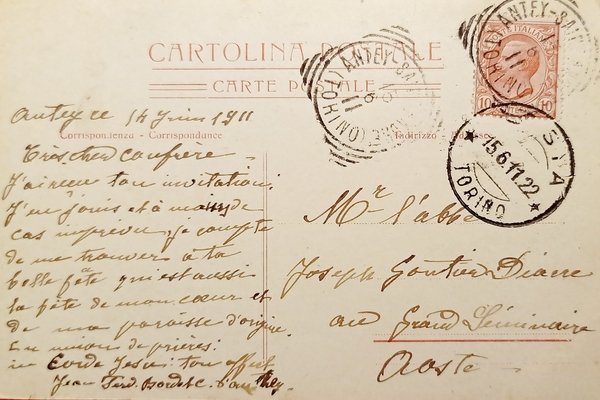 CARTOLINA POSTALE
CARTE POSTALE
Antey ce 14 Juin 1911
Corrispondenza - Correspondance
Indirizzo
Très cher confrère
J'ai reçu ton invitation.
J'en jouis et à moins de
cas imprévu, je compte
de me trouver à ta
belle fête qui est aussi
la fête de mon cœur et
de ma paroisse d'origine.
En union de prières
in Corde Jesu: ton affect
Jean Ferd. Bordet C. d'Anthey
Mr l'abbé
Joseph Gontier Diacre
au Grand Séminaire
Aoste
ANTEY-SA
(TORINO)
ANTEY-S
(TORINO)
10 10
15.6.11.22
TORINO